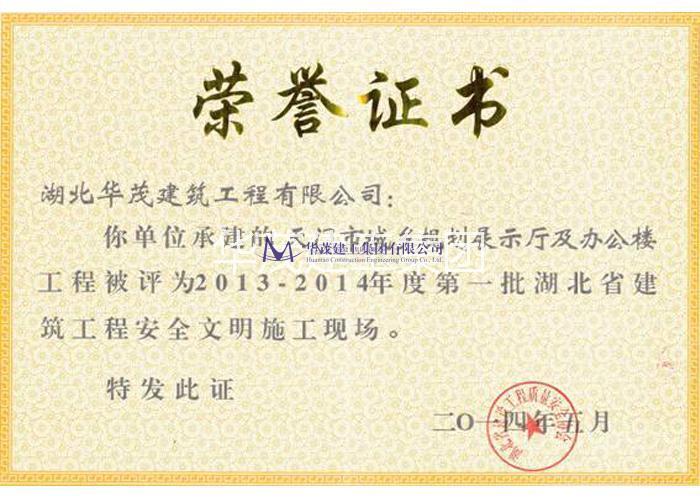 荣誉证书
湖北华茂建筑工程有限公司:
你单位承建的 市城乡规划展示厅及办公楼
华茂建工集团有限公司
Huamao Construction Engineering Group Co., Ltd.
工程被评为2013-2014年度第一批湖北省建
筑工程安全文明施工现场。
特发此证
二〇一四年五月